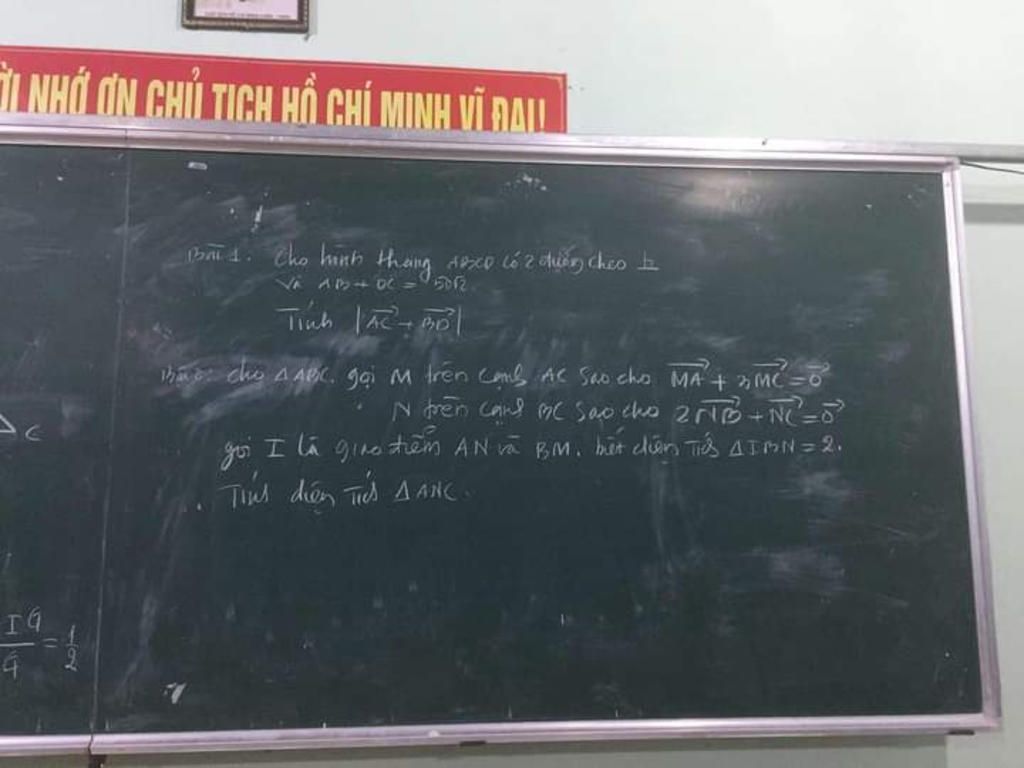 ỜI NHỚ ƠN CHỦ TỊCH HỒ CHÍ MINH VĨ ĐẠI!
Bài 1. Cho hình thang ABCD có 2 đường chéo ⊥
và AB + DC =
Tính |AC→ + BD→|
Bài 2: cho ΔABC. gọi M trên cạnh AC sao cho MA→ + 3MC→ = 0→
N trên cạnh BC sao cho 2NB→ + NC→ = 0→
gọi I là giao điểm AN và BM. biết diện tích ΔIBN = 2.
Tính diện tích ΔANC.
C
IG
G
= 1/2